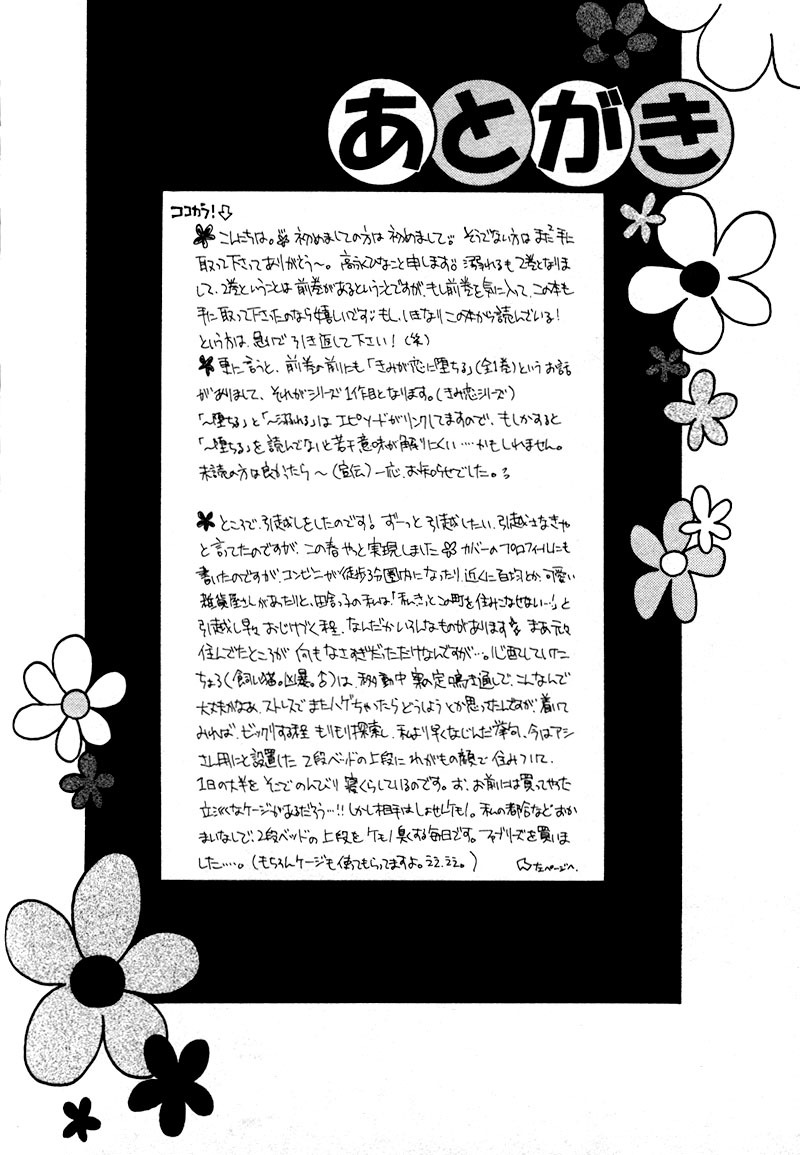 あとがき
ココカラ!
こんにちは。初めましての方は初めまして。そうでない方はまた手に
取って下さってありがとう〜。高永ひなこと申します。溺れるも2巻となりま
して、2巻ということは前巻があるということですが、もし前巻を気に入って、この本も
手に取って下さったのなら嬉しいです。もし、いきなりこの本から読んでいる!
という方は、急いで引き返して下さい!(笑)
更に言うと、前巻の前にも「きみが恋に堕ちる」(全1巻)というお話
がありまして、それがシリーズ1作目となります。(きみ恋シリーズ)
「〜堕ちる」と「〜溺れる」はエピソードがリンクしてますので、もしかすると
「〜堕ちる」を読んでないと若干意味が解りにくい…‥かもしれません。
未読の方は良かったら〜(宣伝)一応、お知らせでした。
ところで、引越しをしたのです!ずーっと引越したい、引越さなきゃ
と言ってたのですが、この春やっと実現しました カバーのプロフィールにも
書いたのですが、コンビニが徒歩3分圏内になったり、近くに百均とか、可愛い
雑貨屋さんがあったりと、田舎っ子の私は「私、きっとこの町を住みこなせない…!」と
引越し早々おじけづく程、なんだかいろんなものがあります まあ元々
住んでたところが何もなさすぎただけなんですが…。心配していた
ちょろ(飼い猫。凶暴。♂)は、移動中案の定鳴き通しで、こんなんで
大丈夫かなあ、ストレスでまたハゲちゃったらどうしようとか思ったんですが、着いて
みれば、ビックリする程もりもり探索し、私より早くなじんだ挙句、今はアシ
さん用にと設置した2段ベッドの上段にわがもの顔で住みついて、
1日の大半をそこでのんびり寝くらしているのです。お、お前には買ってやった
立派なケージがあるだろう…!!しかし相手はしょせんケモノ。私の都合などおか
まいなしで、2段ベッドの上段をケモノ臭くする毎日です。ファブリーズを買いま
した‥‥。(もちろんケージも使ってもらってますよ。ええ、ええ。)
左ページへ。